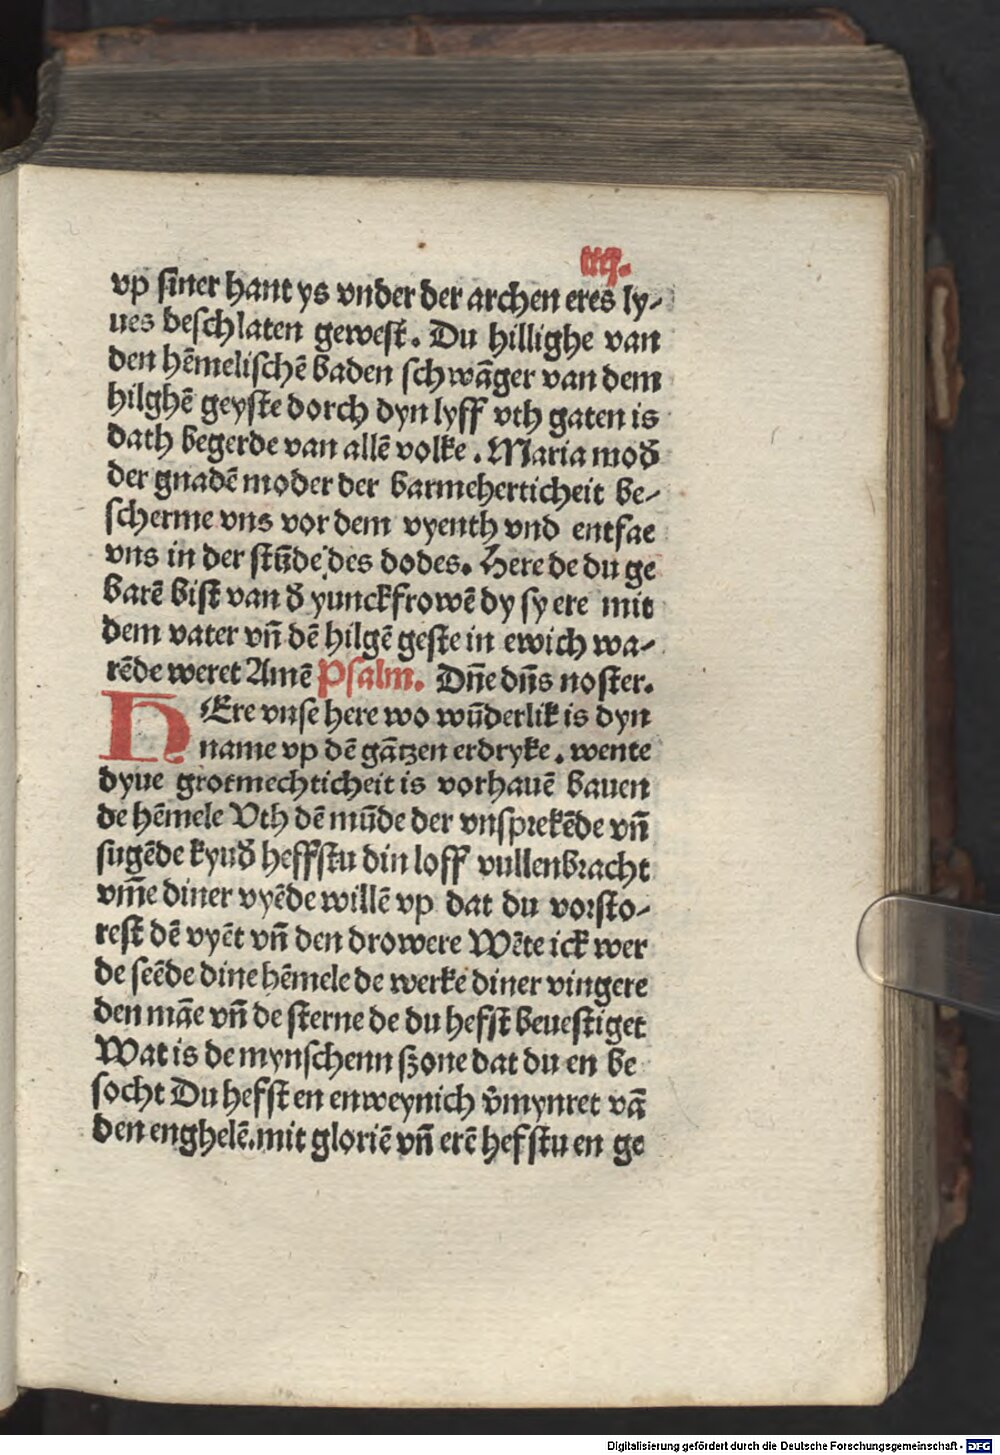 vp siner hant ys vnder der archen eres ly-
ues beschlaten gewest. Du hillighe van
den hēmelischē baden schwāger van dem
hilghē geyste dorch dyn lyff vth gaten is
dath begerde van allē volke. Maria mod̄
der gnadē moder der barmeherticheit be-
scherme vns vor dem vyenth vnd entfae
vns in der stūde des dodes. Here de du ge
barē bist van d̄ yunckfrowē dy sy ere mit
dem vater vn̄ dē hilgē geste in ewich wa-
rēde weret Amē Psalm. Dn̄e dn̄s noster.
HEre vnse here wo wūderlik is dyn
name vp dē gātzen erdryke. wente
dyue grotmechticheit is vorhauē bauen
de hēmele Vth dē mūde der vnsprekēde vn̄
sugēde kyud̄ heffstu din loff vullenbracht
vm̄e diner vyēde willē vp dat du vorsto-
rest dē vyēt vn̄ den drowere Wēte ick wer
de seēde dine hēmele de werke diner vingere
den māe vn̄ de sterne de du hefst beuestiget
Wat is de mynschenn szone dat du en be
socht Du hefst en enweynich v̄mynret vā
den enghelē. mit gloriē vn̄ erē hefstu en ge
Digitalisierung gefördert durch die Deutsche Forschungsgemeinschaft - DFG